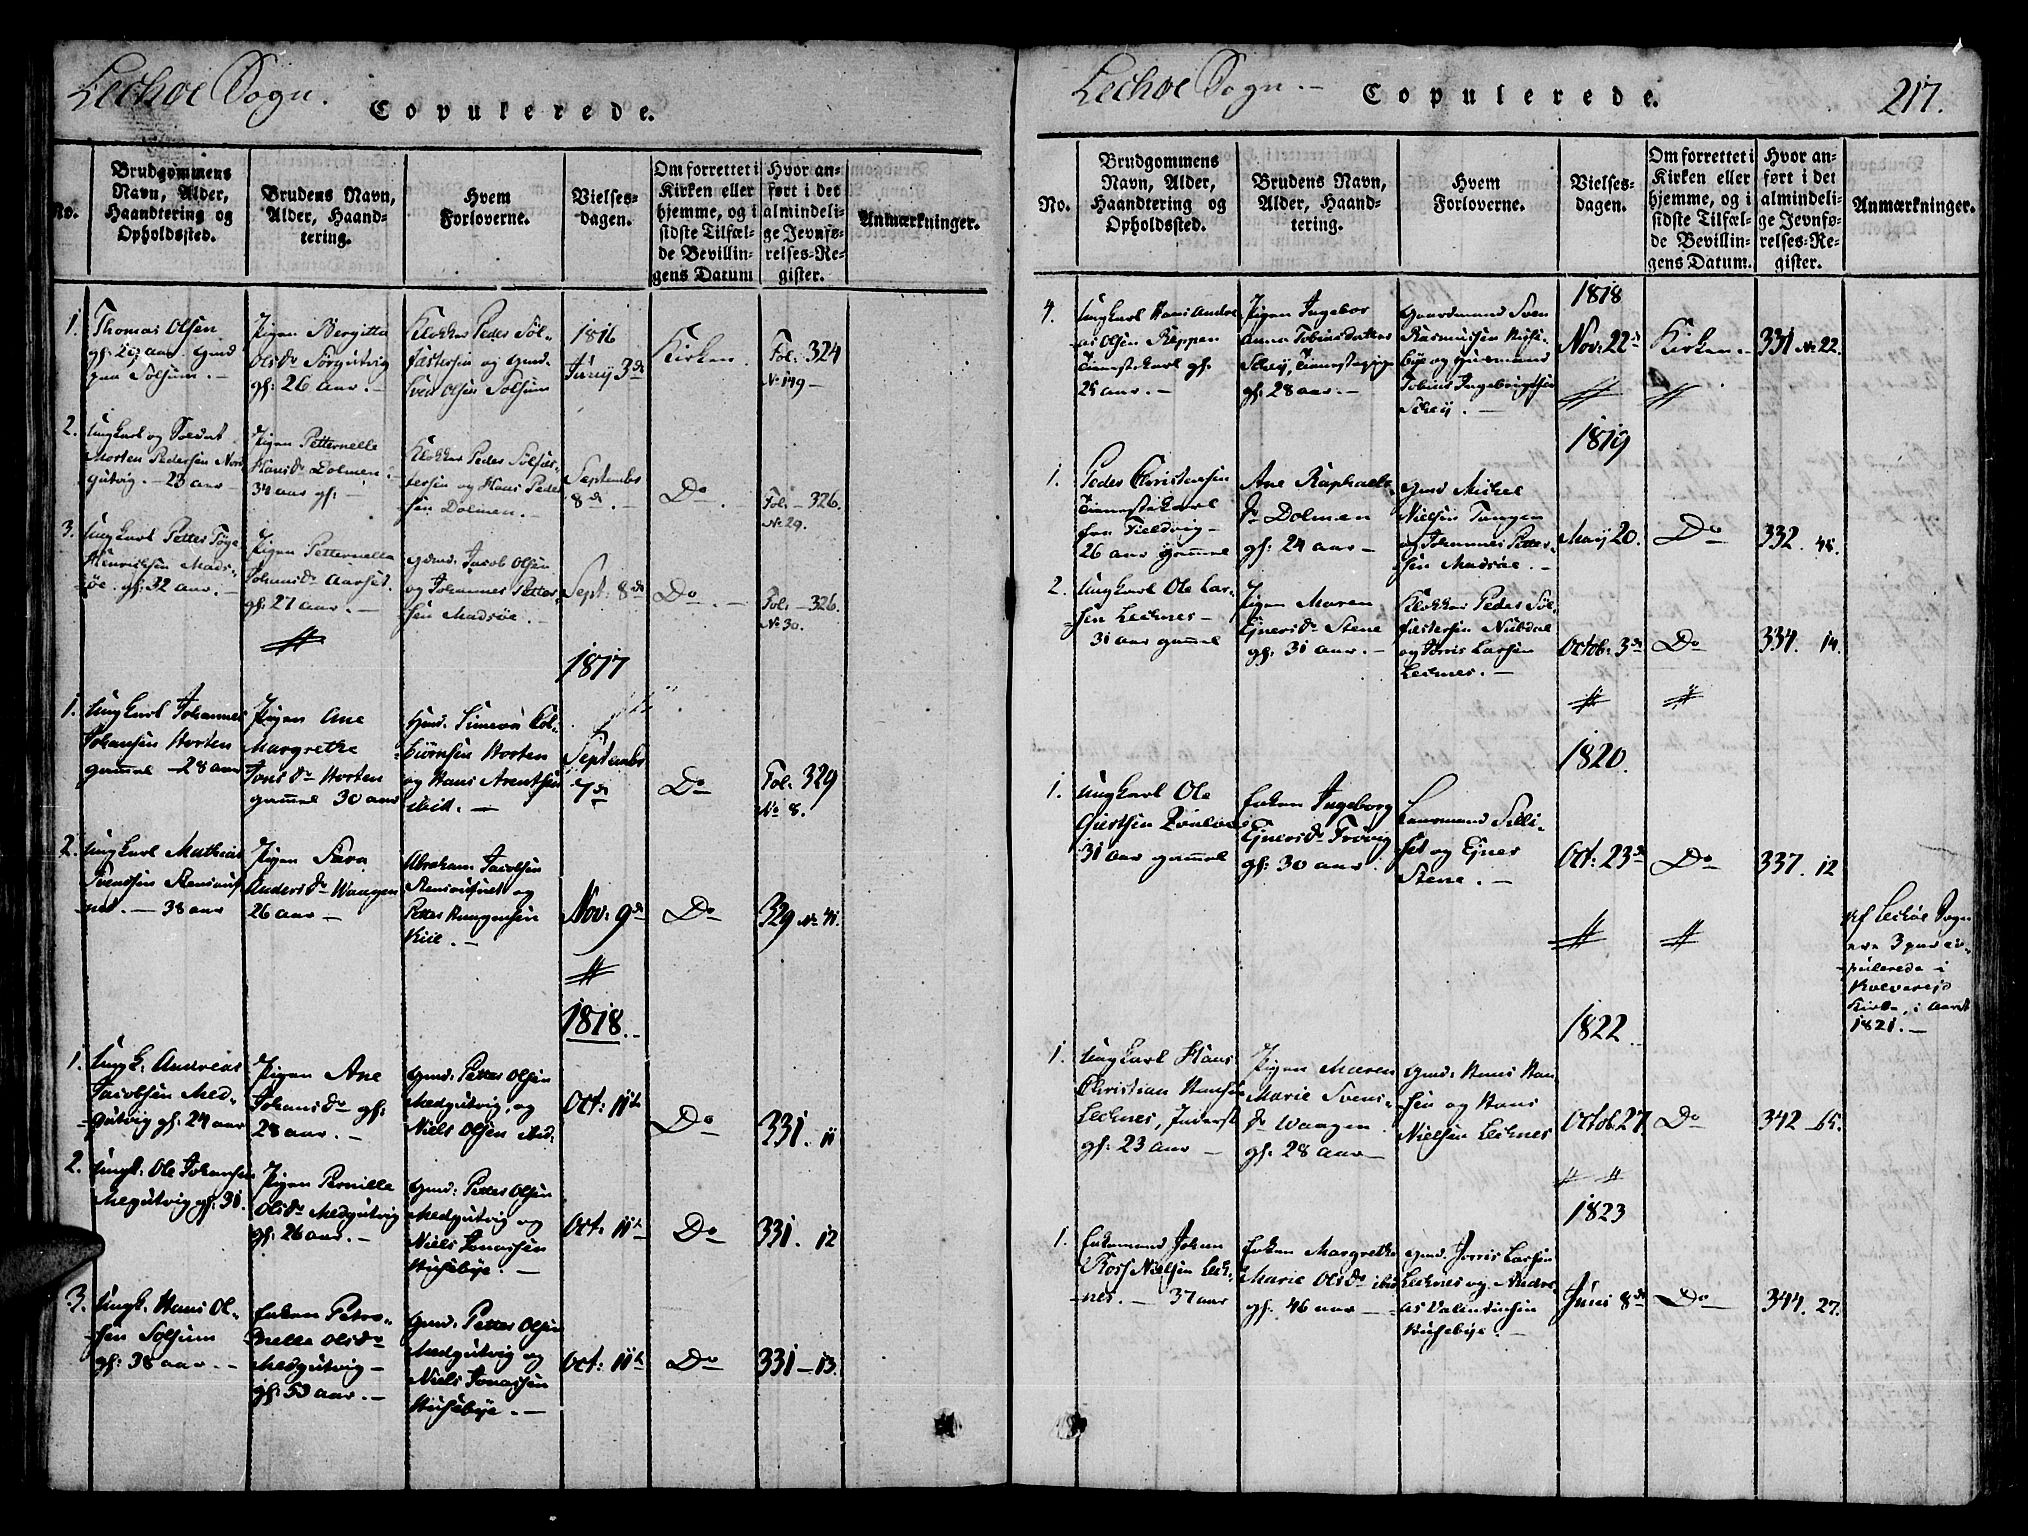 Leckøe Sogn.
Copulerede.
No.
Brudgommens
Navn, Alder,
Haandtering og
Opholdssted.
Brudens Navn,
Alder, Haand-
tering.
Hvem
Forloverne.
Vielses-
dagen.
Om forrettet i
Kirken eller
hjemme, og i
sidste Tilfæl-
de Bevillin-
gens Datum
Hvor an-
ført i det
almindeli-
ge Jevnfø-
relses-Re-
gister.
Anmærkninger.
1.
Thomas Olsen
gl: 29 aar Gmd
paa Solsum. —
Pigen Bergitta
Olsdr Sørgutvig
gl: 26 aar. —
Klokker Peder Søl-
festersen og Gmd.
Sven Olsen Solsum
1816
Juny 3de
Kirken
Fol: 324
No 149 —
2.
Ungkarl og Soldat
Morten Pedersen Nord
gutvig. — 23 aar —
Pigen Petternelle
Hansdr Dolmen
34 aar gl: —
Klokker Peder Sølfes-
tersen og Hans Peder
sen Dolmen. —
September
8de. —
Do
Fol: — 326.
No 29.
3.
Ungkarl Petter Føge
Henrichsen Mads-
øe. gl: 32 aar. —
Pigen Petternella
Johansdr Aarset.
gl: 27 aar. —
Gmd: Jacob Olsen
og Johannes Petter-
sen Madsøe. —
Sept: 8de
Do. —
Fol: — 326.
No 30.
1817
1.
Ungkarl Johannes
Johansen Horten
gammel — 28 aar
Pigen Ane
Margrethe
Jonsdr Horten
gammel 30 aar
Gmd. Simeon Col-
biørnsen Horten
og Hans Arentsen
ibid. —
September
7de
Do
Fol: 329
No 8.
2.
Ungkarl Mathias
Svendsen
— 38 aar
Pigen Sara
Andersdr Waagen
26 aar —
Abraham Jacobsen
og
Petter
Nov: 9de
Do
329 No 41.
1818. —
1.
Ungk: Andreas
Jacobsen Med-
gutvig gl: 24 aar
Pigen Ane
Johansdr gl:
28 aar. —
Gmd: Petter Olsen
Medgutvig, og
Niels Olsen ibid.
Oct: 11te
Do
331. 11
2.
Ungk: Ole Johansen
Medgutvig gl: 31.
Pigen Pernille
Olsdr Medgutvig
gl: 26 aar. —
Gmd: Petter Olsen
Medgutvig og
Niels Jonassen
Husebye. —
Oct: 11te
Do
331. 12
3.
Ungk. Hans Ol-
sen Solsum
gl: 38 aar. —
Enken Petro-
nelle Olsdr
Medgutvig —
gl: 53 aar. —
Gmd: Petter Olsen
Medgutvig og
Niels Jonassen
Husebye. —
Oct: 11te
Do
331 — 13.
Leckøe Sogn. —
Copulerede.
217.
No.
Brudgommens
Navn, Alder,
Haandtering og
Opholdssted.
Brudens Navn,
Alder, Haand-
tering.
Hvem
Forloverne.
Vielses-
dagen.
Om forrettet i
Kirken eller
hjemme, og i
sidste Tilfæl-
de Bevillin-
gens Datum.
Hvor an-
ført i det
almindeli-
ge Jevnfø-
relses-Re-
gister.
Anmærkninger.
1818
4.
Ungkarl Hans Andre
as Olsen Reppen
Tienestekarl gl:
25 aar. —
Pigen Ingebor
Anna Tobiasdatter
Skey, Tienestepige
gl: 28 aar. —
Gaardmand Sven
Rasmussen Huse-
bye og Huusmand
Tobias Ingebrigtsen
Skey. —
Nov: 22de
Kirken —
331 No 22.
1819
1.
Peder Christensen
Tienestekarl
fra Fieldvig —
26 aar gammel
Ane Raphaels-
dr Dolmen
gl: 24 aar —
Gmd Michel
Nielsen Tangen
og Johannes Petter-
sen Madsøe. —
May 20.
Do
332. 45.
2.
Ungkarl Ole Lar-
sen Lecknes —
31 aar gammel
Pigen Maren
Ejnersdr Stene
gl: 31 aar. —
Klokker Peder Søl-
festersen
og Jørris Larsen
Lecknes. —
Octob: 3de
Do
334. 14.
1820.
1.
Ungkarl Ole
31 aar gammel
Enken Ingeborg
Ejnersdr
gl: 30 aar.
og Ejner
Stene. —
Oct: 23de
Do
337. 12
Af Leckøe Sogn
ere 3 par co-
pulerede i
Kolvereid
Kirke, i aaret
1821. —
1822
1.
Ungkarl Hans
Christian Hansen
Lecknes, Inderst
gl: 23 aar —
Pigen Maren
Marie Svens-
dr Waagen
gl: 28 aar —
Gmd: Hans Han
sen og Hans
Nielsen Lecknes
Octob. 27.
Do
342 — 65.
1823
1.
Enkemand Johan
Nielsen Leck-
nes. — 37 aar
Enken Margrethe
Marie Olsdr ibid
gl: 46 aar —
Gmd: Jørris Larsen
Lecknes og Andre
as Valentinsen
Husebye. —
Juni 8de
Do
344. 27.